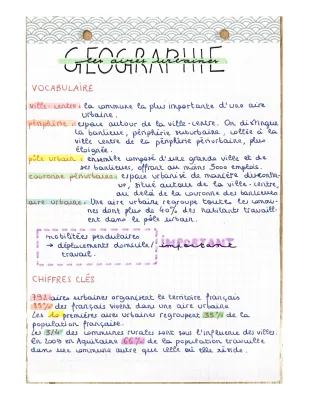 GEOGRAPHIE
les aires urbaines
VOCABULAIRE
ville-centre : la commune la plus importante d'une aire
urbaine.
périphérie : espace autour de la ville-centre. On distingue
la banlieue, périphérie suburbaine, collée à la
ville centre de la périphérie périurbaine, plus
éloignée.
pôle urbain : ensemble composé d'une grande ville et de
ses banlieues, offrant au moins 5000 emplois.
couronne périurbaine : espace urbanisé de manière discontinu
, situé autour de la ville-centre,
au delà de la couronne des banlieues
aire urbaine : Une aire urbaine regroupe toute les commu-
nes dont plus de 40% des habitants travaill-
ent dans le pôle urbain.
mobilités pendulaires
→ déplacements domicile/
travail.
IMPORTANT
importante
CHIFFRES CLÉS
792 aires urbaines organisent le territoire français
des français vivent dans une aire urbaine
Les 10 premières aires urbaines regroupent 35% de la
population française.
Les 3/4 des communes rurales sont sous l'influence des villes.
En 2009 en Aquitaine 66% de la population travaille
dans une commune autre que celle où elle réside.